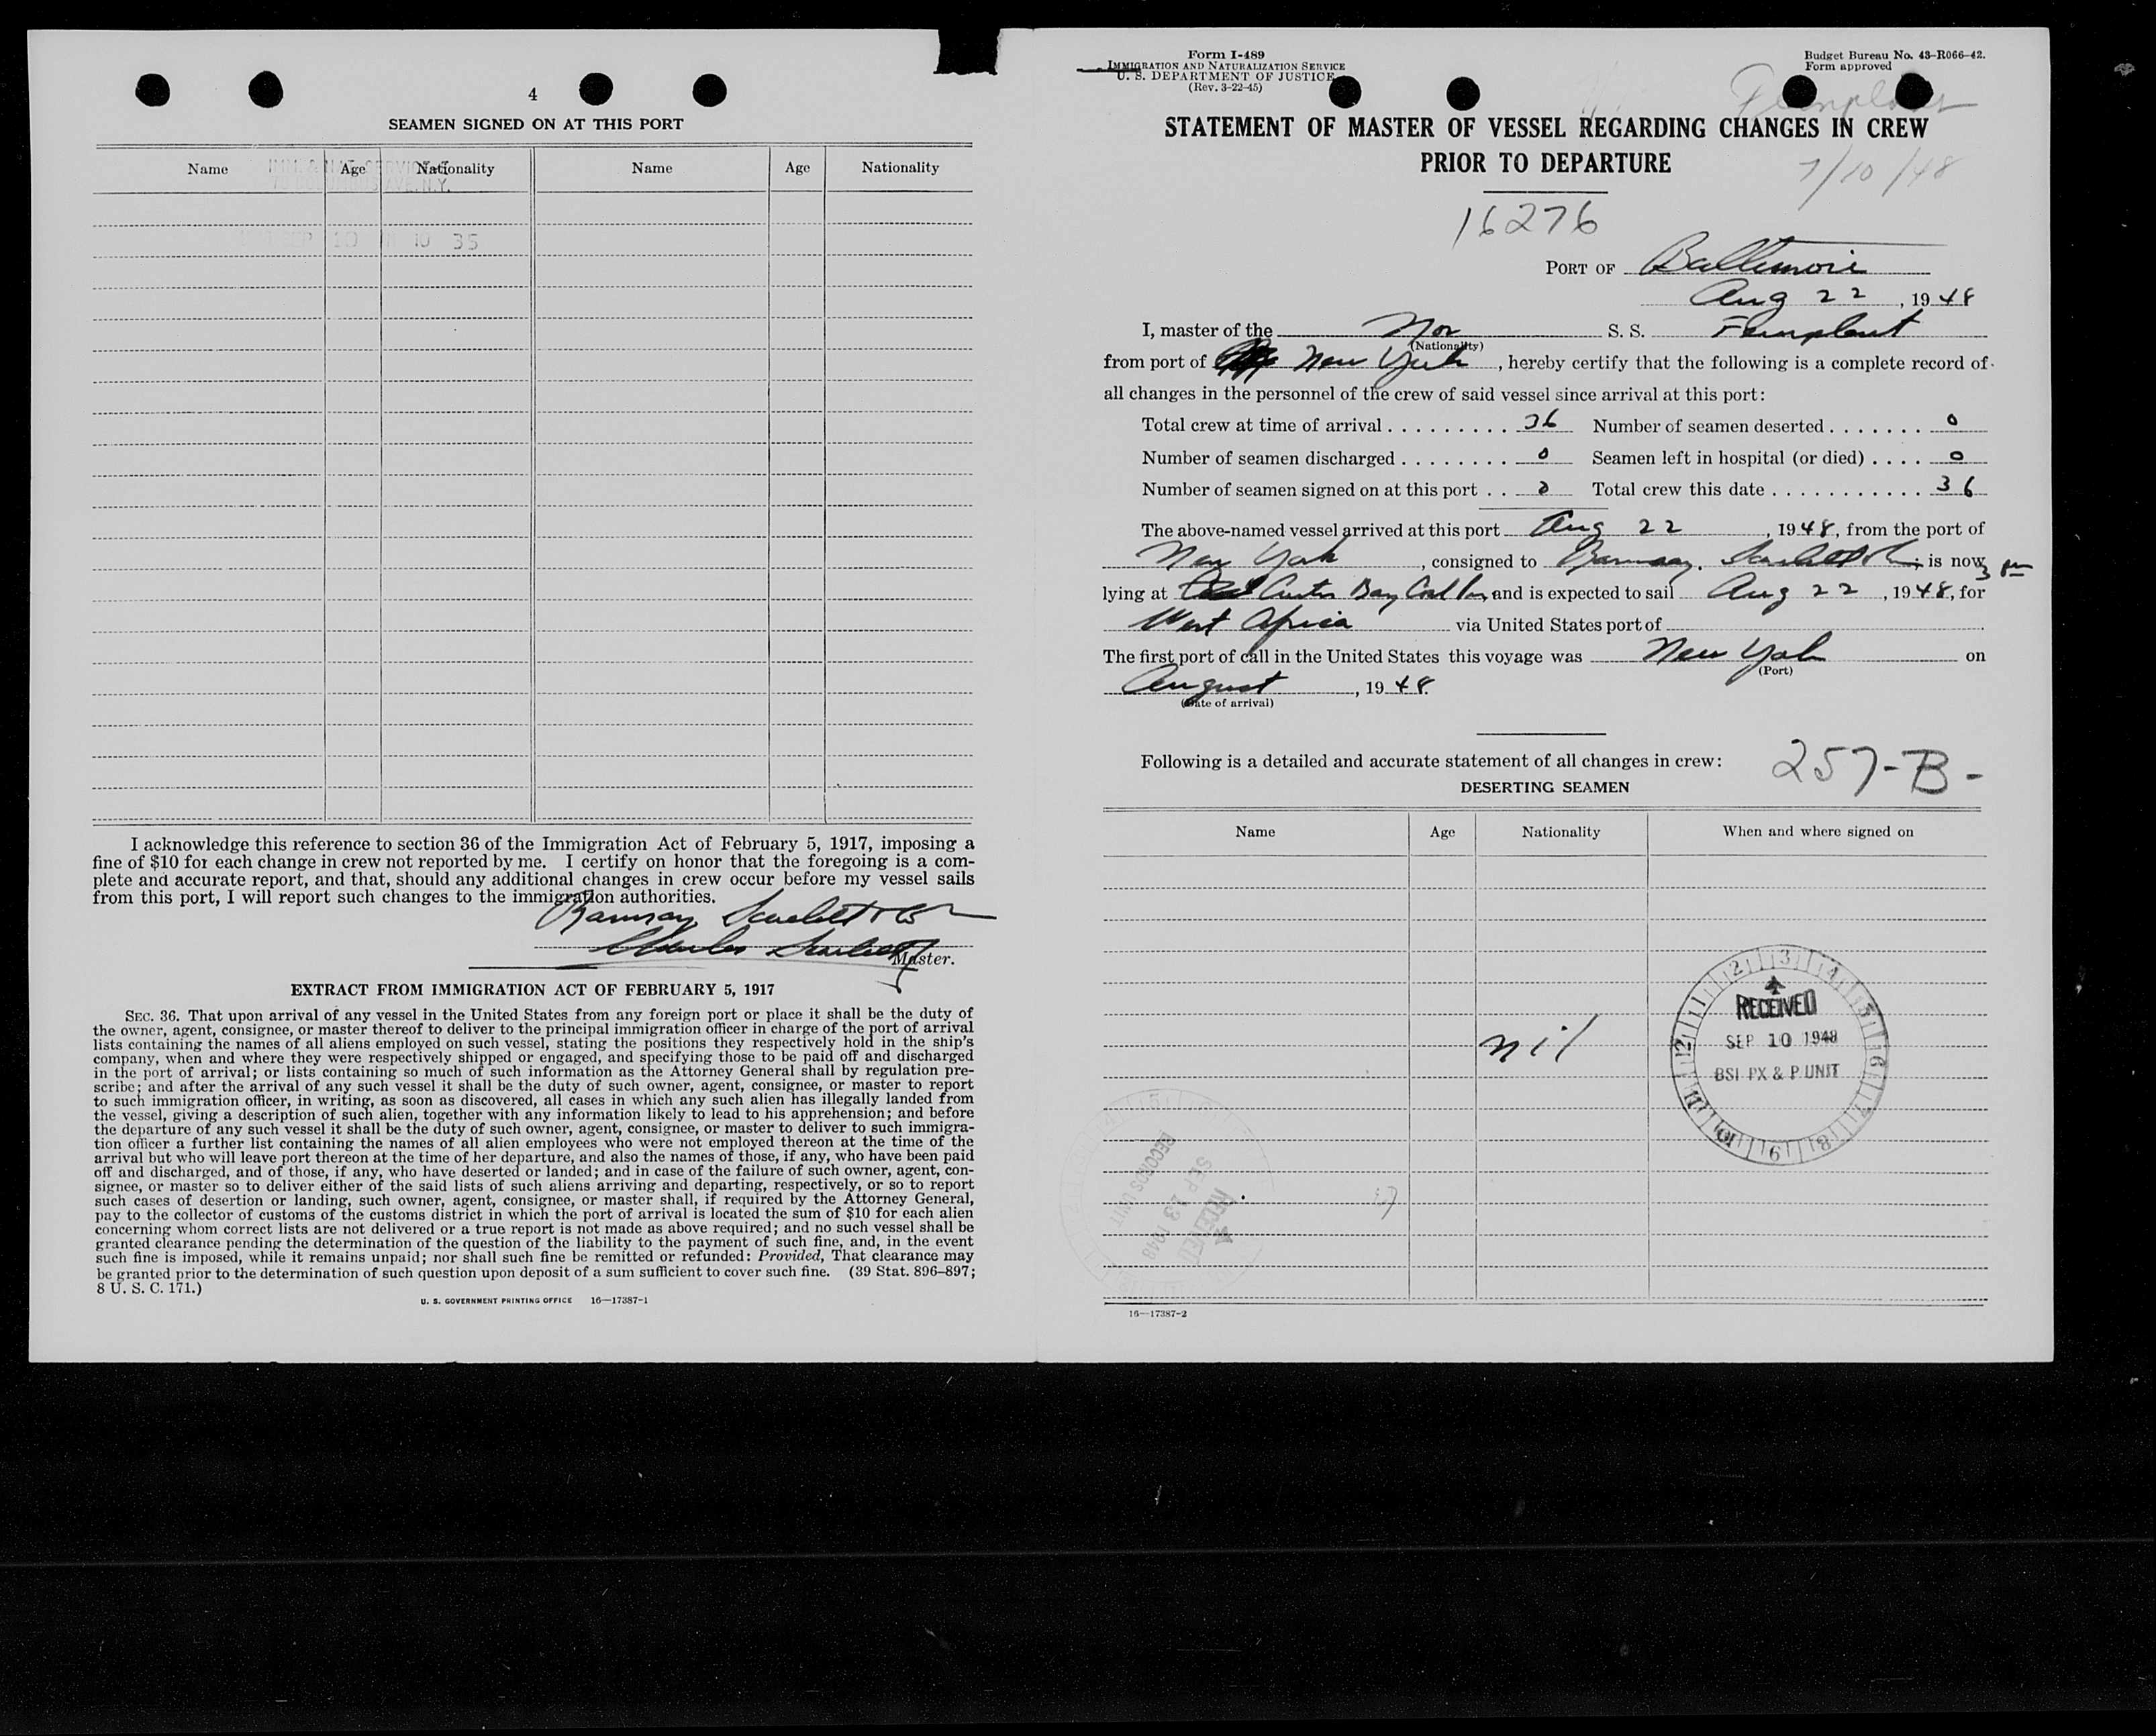 4
SEAMEN SIGNED ON AT THIS PORT
Name Age Nationality Name Age Nationality
SEP 10 10 35
I acknowledge this reference to section 36 of the Immigration Act of February 5, 1917, imposing a
fine of $10 for each change in crew not reported by me. I certify on honor that the foregoing is a com-
plete and accurate report, and that, should any additional changes in crew occur before my vessel sails
from this port, I will report such changes to the immigration authorities.
Ramsay Scarlett & Co
Charles Scarlett
Master.
EXTRACT FROM IMMIGRATION ACT OF FEBRUARY 5, 1917
SEC. 36. That upon arrival of any vessel in the United States from any foreign port or place it shall be the duty of
the owner, agent, consignee, or master thereof to deliver to the principal immigration officer in charge of the port of arrival
lists containing the names of all aliens employed on such vessel, stating the positions they respectively hold in the ship's
company, when and where they were respectively shipped or engaged, and specifying those to be paid off and discharged
in the port of arrival; or lists containing so much of such information as the Attorney General shall by regulation pre-
scribe; and after the arrival of any such vessel it shall be the duty of such owner, agent, consignee, or master to report
to such immigration officer, in writing, as soon as discovered, all cases in which any such alien has illegally landed from
the vessel, giving a description of such alien, together with any information likely to lead to his apprehension; and before
the departure of any such vessel it shall be the duty of such owner, agent, consignee, or master to deliver to such immigra-
tion officer a further list containing the names of all alien employees who were not employed thereon at the time of the
arrival but who will leave port thereon at the time of her departure, and also the names of those, if any, who have been paid
off and discharged, and of those, if any, who have deserted or landed; and in case of the failure of such owner, agent, con-
signee, or master so to deliver either of the said lists of such aliens arriving and departing, respectively, or so to report
such cases of desertion or landing, such owner, agent, consignee, or master shall, if required by the Attorney General,
pay to the collector of customs of the customs district in which the port of arrival is located the sum of $10 for each alien
concerning whom correct lists are not delivered or a true report is not made as above required; and no such vessel shall be
granted clearance pending the determination of the question of the liability to the payment of such fine, and, in the event
such fine is imposed, while it remains unpaid; nor shall such fine be remitted or refunded: Provided, That clearance may
be granted prior to the determination of such question upon deposit of a sum sufficient to cover such fine. (39 Stat. 896–897;
8 U. S. C. 171.)
U. S. GOVERNMENT PRINTING OFFICE 16—17387-1
Form I-489
IMMIGRATION AND NATURALIZATION SERVICE
U. S. DEPARTMENT OF JUSTICE
(Rev. 3-22-45)
Budget Bureau No. 43–R066–42.
Form approved
Femplant
STATEMENT OF MASTER OF VESSEL REGARDING CHANGES IN CREW
PRIOR TO DEPARTURE
7/10/48
16276
PORT OF Baltimore
Aug 22, 1948
I, master of the Nor S. S. Femplant
(Nationality)
from port of New York, hereby certify that the following is a complete record of
all changes in the personnel of the crew of said vessel since arrival at this port:
Total crew at time of arrival . . . . . . . . . 36 Number of seamen deserted . . . . . . . 0
Number of seamen discharged . . . . . . . . 0 Seamen left in hospital (or died) . . . . 0
Number of seamen signed on at this port . . 0 Total crew this date . . . . . . . . . . . . 36
The above-named vessel arrived at this port Aug 22, 1948, from the port of
New York, consigned to Ramsay, Scarlett & Co; is now
lying at Curtis Bay Coal Pier, and is expected to sail Aug 22, 1948, for 3 pm
West Africa via United States port of
The first port of call in the United States this voyage was New York on
(Port)
August, 1948
(Date of arrival)
Following is a detailed and accurate statement of all changes in crew:
257-B-
DESERTING SEAMEN
Name Age Nationality When and where signed on
nil
RECEIVED
SEP 10 1948
BSI PX & P UNIT
RECEIVED
SEP 13 1948
RECORDS UNIT
16—17387-2